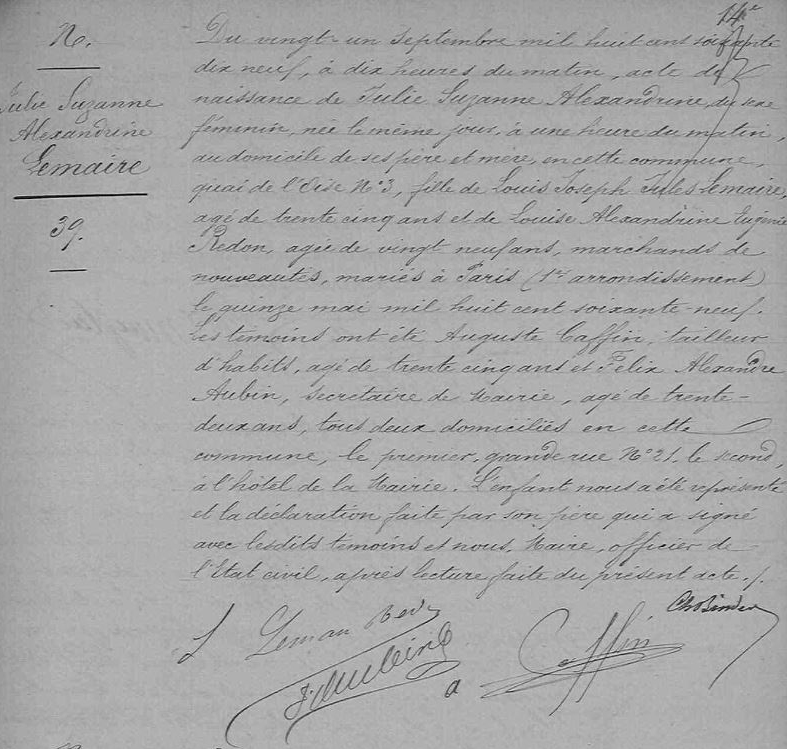 14e
N.
Julie Suzanne
Alexandrine
Lemaire
39.
Du vingt-un Septembre mil huit cent soixante
dix neuf, à dix heures du matin, acte de
naissance de Julie Suzanne Alexandrine, du sexe
féminin, née le même jour, à une heure du matin,
au domicile de ses père et mère, en cette commune,
quai de l'Oise No 3, fille de Louis Joseph Jules Lemaire,
agé de trente cinq ans et de Louise Alexandrine Eugénie
Redon, agée de vingt neuf ans, marchands de
nouveautés, mariés à Paris (1er arrondissement)
le quinze mai mil huit cent soixante-neuf.
Les témoins ont été Auguste Caffin, tailleur
d'habits, agé de trente cinq ans et Félix Alexandre
Aubin, secrétaire de Mairie, agé de trente-
deux ans, tous deux domiciliés en cette
commune, le premier, grande rue No 21, le second,
à l'hôtel de la Mairie. L'enfant nous a été représenté
et la déclaration faite par son père qui a signé
avec lesdits témoins et nous, Maire, officier de
l'Etat civil, après lecture faite du présent acte./.
Caffin